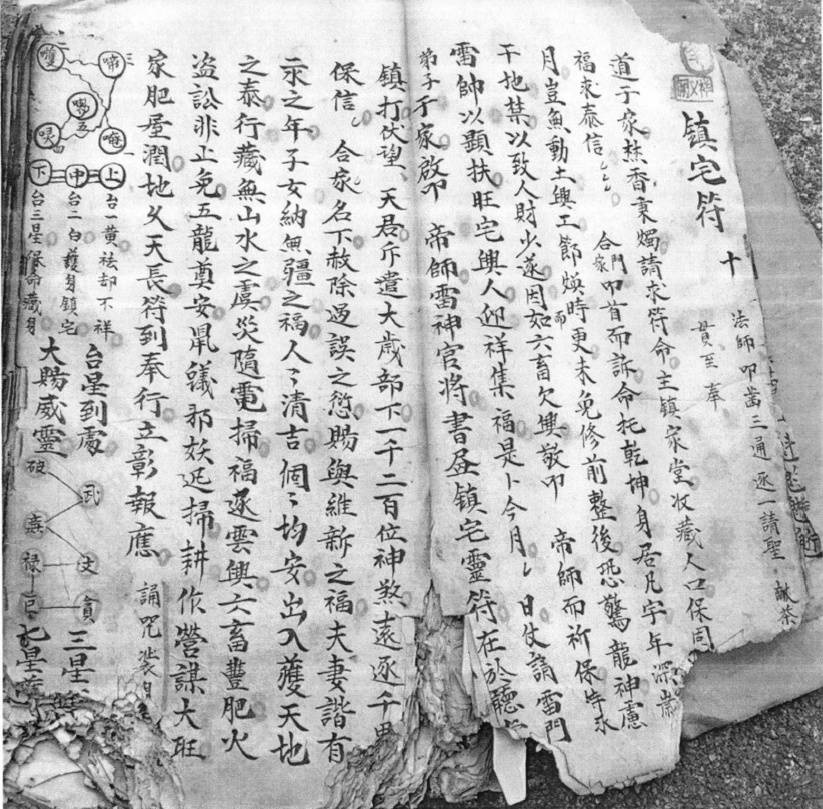 鎮宅符 十
法師叩齒三通逐一請聖 献茶
貫至奉
道于家焚香秉燭請求符命主鎮家堂收藏人口保同
福來泰信 合門家叩首而訴命托乾坤身居凡宇年深歲
月豈無動土興工節煥時更未免修前整後恐驚龍神慮
干地禁以致人財少遂因而如六畜欠興敬叩 帝師而祈保特求
雷帥以顯扶旺宅興人迎祥集福是卜今月 日仗請雷門
弟子于家啟叩 帝師雷神官將書函鎮宅靈符在於聽
鎮打伏望 天君斥遣大歲部下一千二百位神煞遠逐千里
保信 合家名下赦除過誤之愆賜與維新之福夫妻諧有
永之年子女納無疆之福人々清吉個々均安出入獲天地
之泰行藏無山水之虞災隨電掃福逐雲興六畜豐肥火
盜訟非止免五龍奠安鼠蟻邪妖迅掃耕作營謀大旺
家肥屋潤地久天長符到奉行立彰報應 誦咒裝身
三
唵 一
五
四
上 中 下
台一黄祛却不祥
台二白護身鎮宅
台三星保命藏身
台星到處
大賜威靈
武 文 貪
破 禄 巨
三星
七星